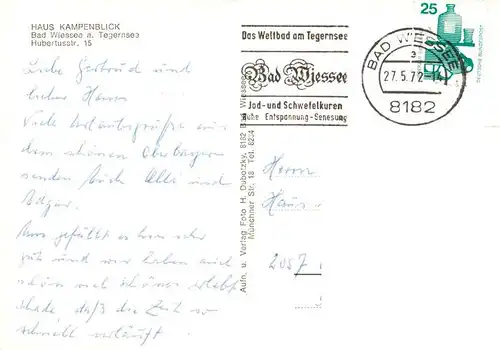 HAUS KAMPENBLICK
Bad Wiessee a. Tegernsee
Hubertusstr. 15
Liebe Gertrud und
lieber Hans
Viele Urlaubsgrüße aus
dem schönen Oberbayern
senden Euch Elli und
Edgar.
Uns gefällt es hier sehr
gut und wir haben auch
schon viel schönes erlebt
schade, daß die Zeit so
schnell verläuft.
Aufn. u. Verlag Foto H. Dubotzky, 8182 Bad Wiessee
Münchner Str. 18 Tel. 8234
Das Weltbad am Tegernsee
Bad Wiessee
Jod- und Schwefelkuren
Ruhe Entspannung-Genesung
BAD WIESSEE
a
27.5.72-14
8182
25
DEUTSCHE BUNDESPOST
Herrn
Hans
2057